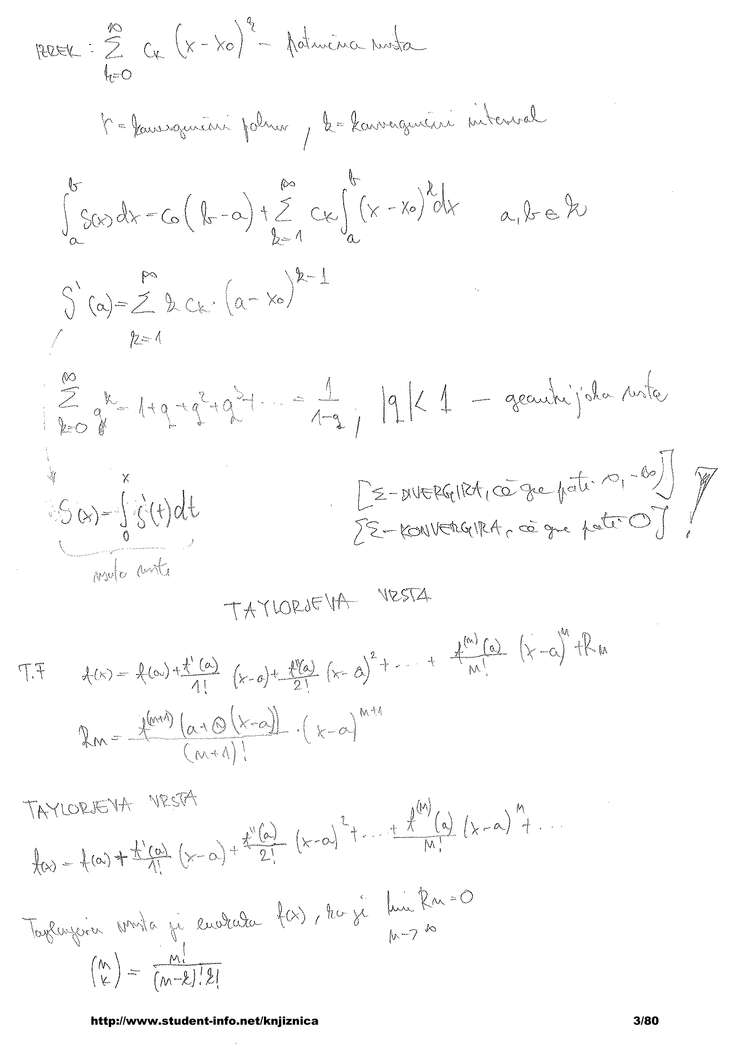 IZREK: ∑_{k=0}^{∞} c_k (x-x_0)^k - potenčna vrsta
r = konvergenčni polmer, k = konvergenčni interval
∫_a^b S(x)dx = c_0(b-a) + ∑_{k=1}^{∞} c_k ∫_a^b (x-x_0)^k dx   a,b ∈ k
S'(a) = ∑_{k=1}^{∞} k c_k · (a-x_0)^{k-1}
∑_{k=0}^{∞} q^k = 1+q+q^2+q^3+... = 1/(1-q), |q|<1 - geometrijska vrsta
[Σ-DIVERGIRA, če gre proti ∞, -∞]
S(x) = ∫_0^x S'(t)dt
[Σ-KONVERGIRA, če gre proti 0] !
vsota vrste
TAYLORJEVA VRSTA
T.F f(x) = f(a) + f'(a)/1! (x-a) + f''(a)/2! (x-a)^2 + ... + f^(n)(a)/n! (x-a)^n + R_n
R_n = f^(n+1)(a+Θ(x-a))/(n+1)! · (x-a)^{n+1}
TAYLORJEVA VRSTA
f(x) = f(a) + f'(a)/1! (x-a) + f''(a)/2! (x-a)^2 + ... + f^(n)(a)/n! (x-a)^n + ...
Taylorjeva vrsta je enaka f(x), ko je lim_{n→∞} R_n = 0
(n k) = n!/((n-k)!k!)
http://www.student-info.net/knjiznica 3/80